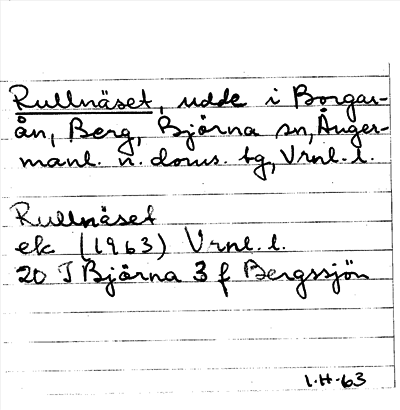 Rullnäset, udde i Borgar-
ån, Berg, Björna sn, Ånger-
manl. n. doms. tg, Vrnl. l.
Rullnäset
ek (1963) Vrnl. l.
20 J Björna 3 f Bergssjön
I.H-63